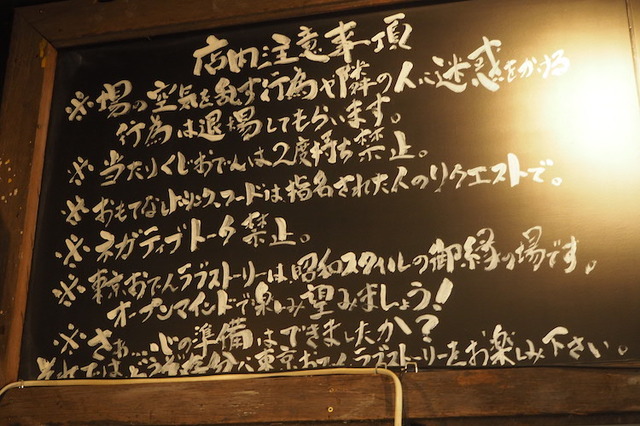 店内注意事項
※場の空気を乱す行為や隣の人に迷惑をかける
行為は退場してもらいます。
※当たりくじおでんは2度持ち禁止。
※おもてなしドリンク、フードは指名された人のリクエストで。
※ネガティブトーク禁止。
※東京おでんラブストーリーは、昭和スタイルの御縁の場です。
オープンマインドで楽しみ望みましょう!
※さぁ…心の準備はできましたか?
それではどうぞ存分に東京おでんラブストーリーをお楽しみ下さい。